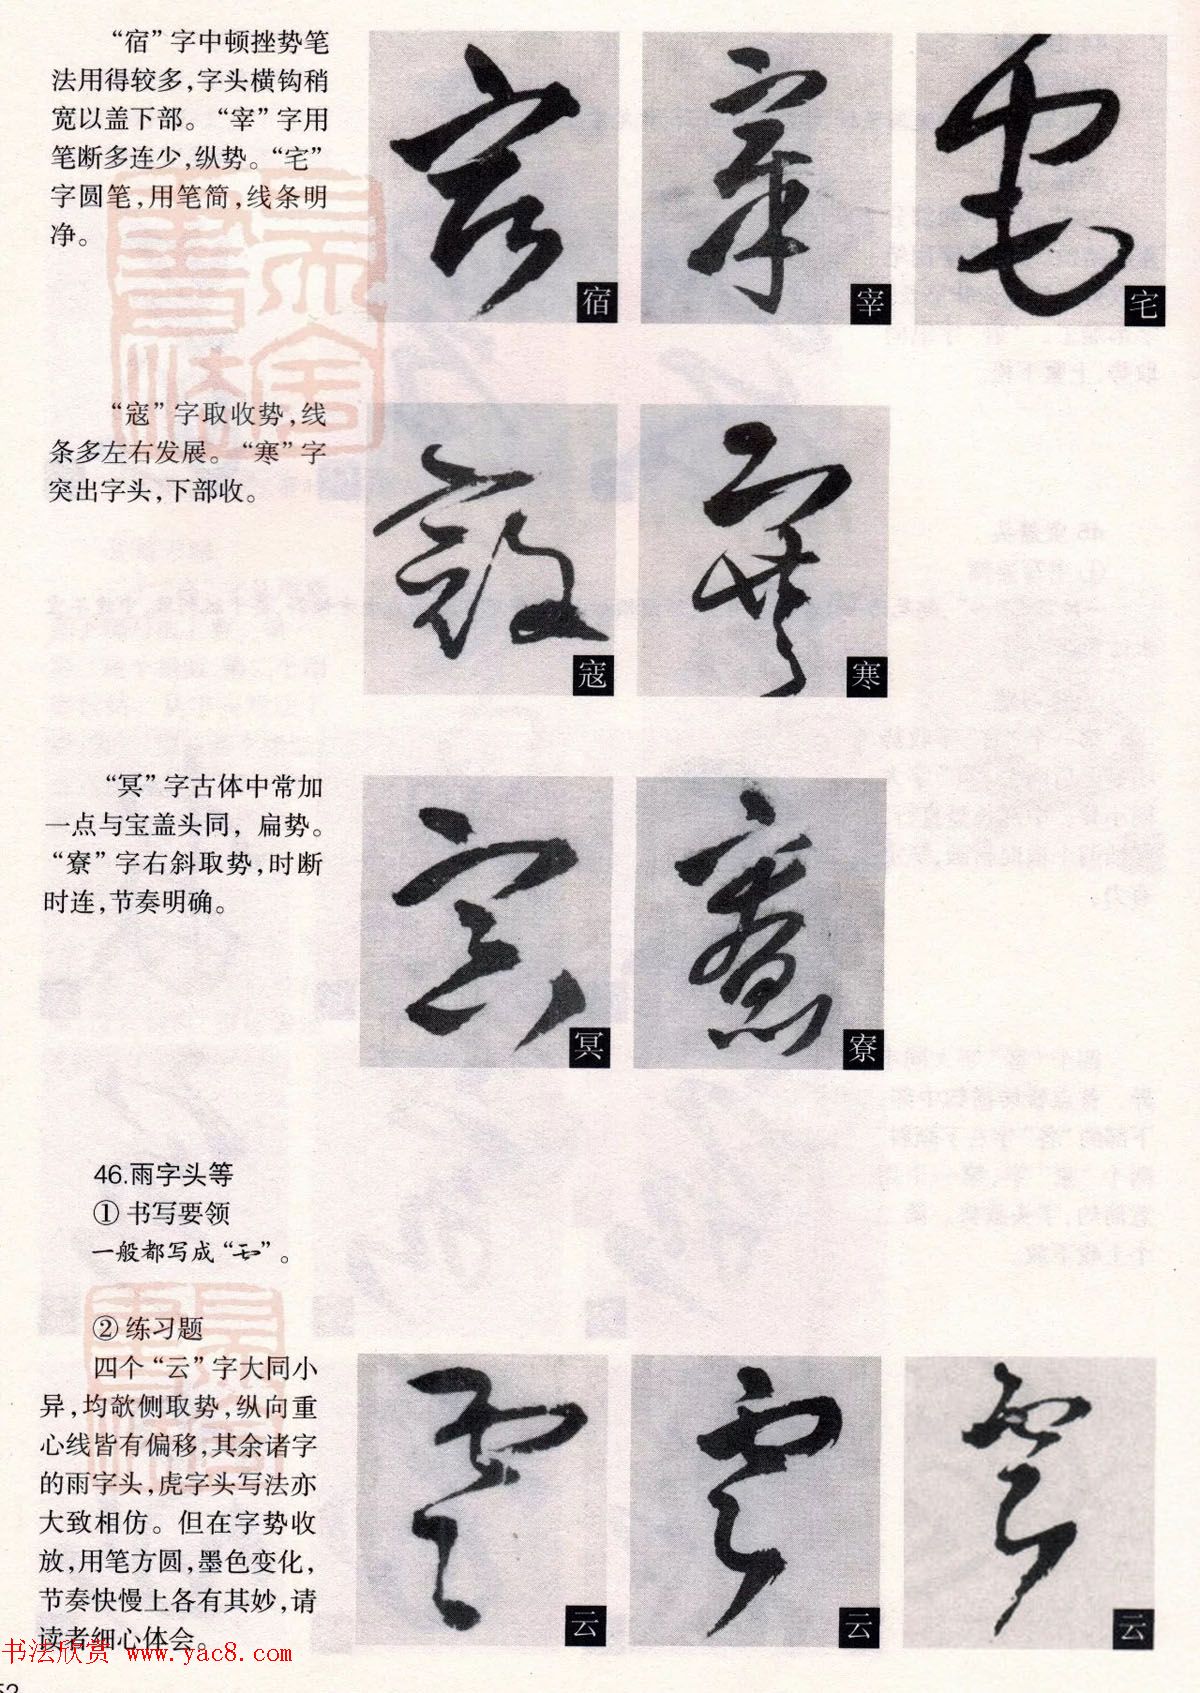 “宿”字中顿挫势笔
法用得较多，字头横钩稍
宽以盖下部。“宰”字用
笔断多连少，纵势。“宅”
字圆笔，用笔简，线条明
净。
宿
宰
宅
“寇”字取收势，线
条多左右发展。“寒”字
突出字头，下部收。
寇
寒
“冥”字古体中常加
一点与宝盖头同，扁势。
“寮”字右斜取势，时断
时连，节奏明确。
冥
寮
46.雨字头等
① 书写要领
一般都写成“”。
② 练习题
四个“云”字大同小
异，均欹侧取势，纵向重
心线皆有偏移，其余诸字
的雨字头，虎字头写法亦
大致相仿。但在字势收
放，用笔方圆，墨色变化，
节奏快慢上各有其妙，请
读者细心体会。
云
云
云
书法欣赏 www.yac8.com
52